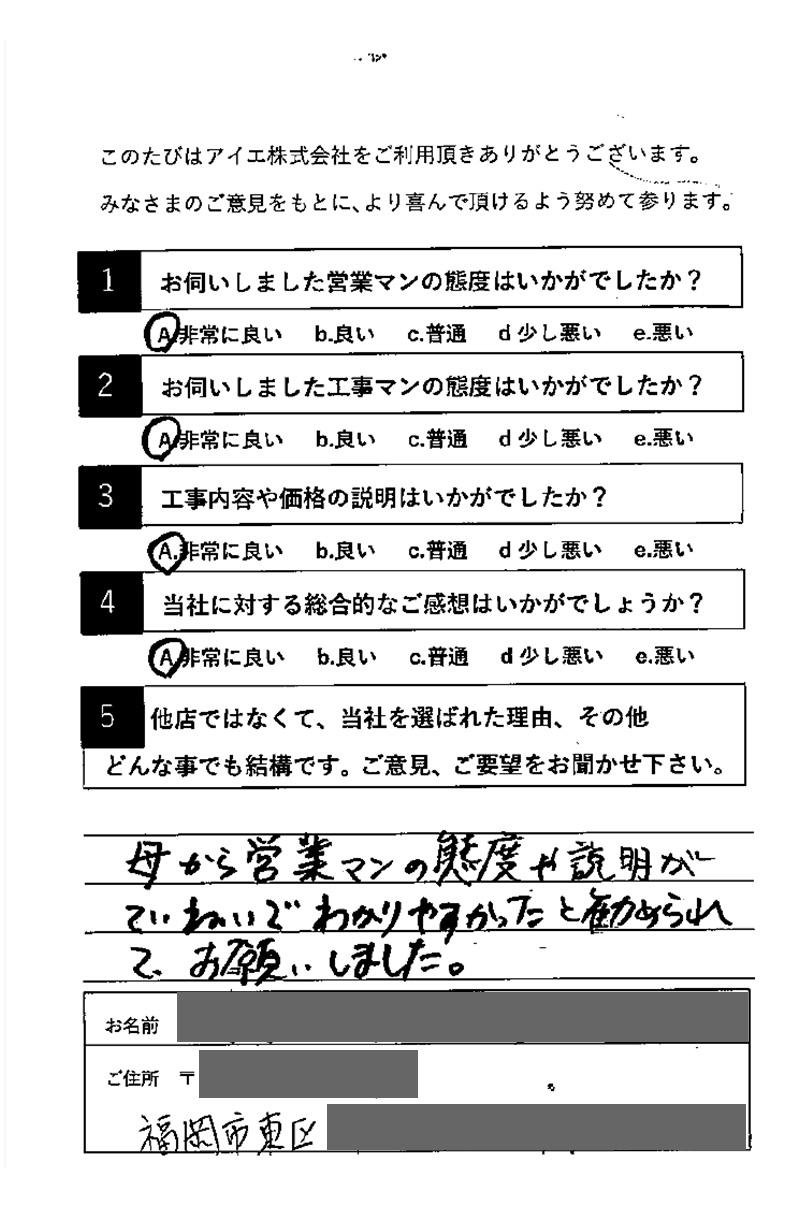 このたびはアイエ株式会社をご利用頂きありがとうございます。
みなさまのご意見をもとに、より喜んで頂けるよう努めて参ります。
1 お伺いしました営業マンの態度はいかがでしたか？
A.非常に良い b.良い c.普通 d 少し悪い e.悪い
2 お伺いしました工事マンの態度はいかがでしたか？
A.非常に良い b.良い c.普通 d 少し悪い e.悪い
3 工事内容や価格の説明はいかがでしたか？
A.非常に良い b.良い c.普通 d 少し悪い e.悪い
4 当社に対する総合的なご感想はいかがでしょうか？
A.非常に良い b.良い c.普通 d 少し悪い e.悪い
5 他店ではなくて、当社を選ばれた理由、その他
どんな事でも結構です。ご意見、ご要望をお聞かせ下さい。
母から営業マンの態度や説明が
ていねいでわかりやすかったと勧められ
て、お願いしました。
お名前
ご住所 〒
福岡市東区